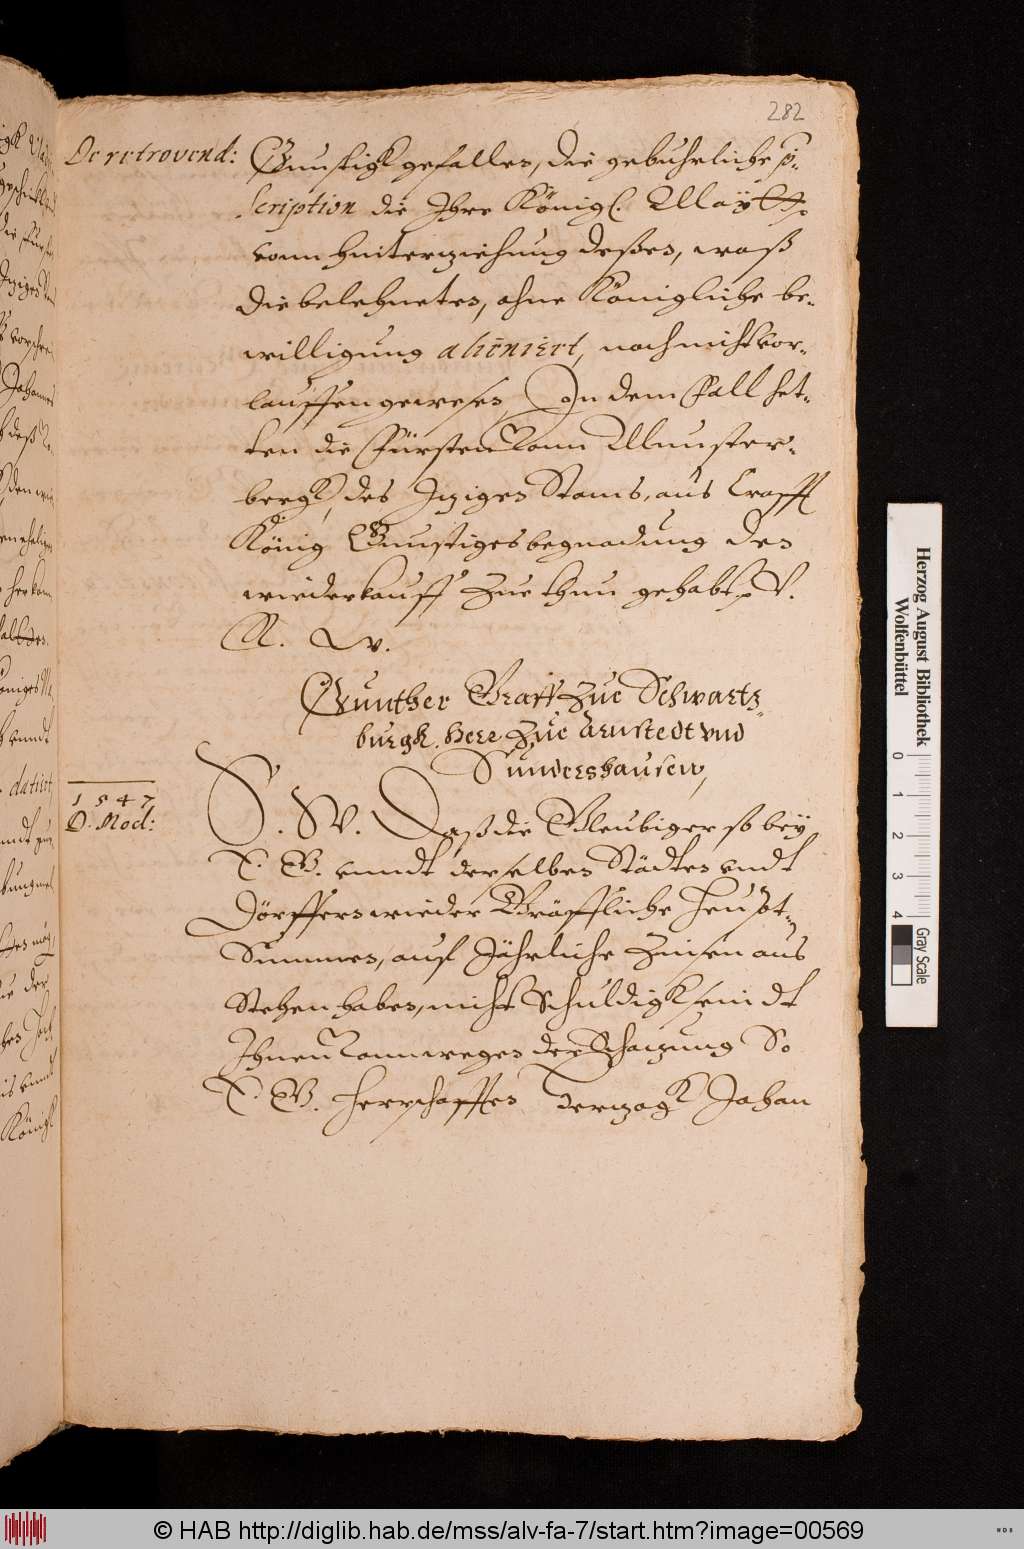 282
De retrovend: Gunstigk gefallen, die gebuhrliche p̱-
scription die Ihre Königl. Mayt.
vonn hinterziehung deßen, waß
die belehneten, ohne Königliche be-
willigung alieniert, noch nicht vor-
lauffen gewesen, In dem Fall het-
ten die Fürsten vonn Munster-
bergk, des Iziges Stams, aus Crafft
König Gunstiges begnadung den
wiederkauff zue thun gehabt V.
R. W.
Gunther Graff zue Schwartz-
burgk. Herr zue Arnstedt vnd
Sundershausen,
1547
D. Mod:
S. W. Daß die Gleubiger so bey
E. G. vnndt derselben Städten vndt
Dörffern wieder Gräffliche Heubt-
Summen, auf Jährliche Zinsen aus
Stehen haben, nicht Schuldigk seindt
Ihnen vonn wegen der Schazung So
E. G. herrschafften Herzogk Johan
Herzog August Bibliothek
Wolfenbüttel
0 1 2 3 4
Gray Scale
© HAB http://diglib.hab.de/mss/alv-fa-7/start.htm?image=00569